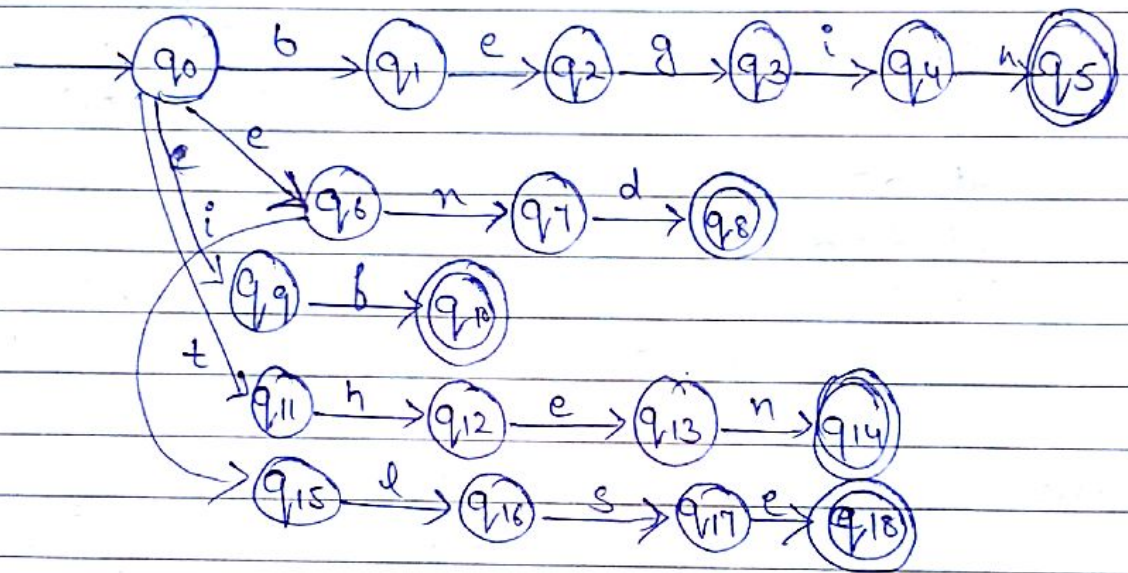 q0 b q1 e q2 g q3 i q4 n q5
e e q6 n q7 d q8
i q9 f q10
t q11 h q12 e q13 n q14
q15 l q16 s q17 e q18